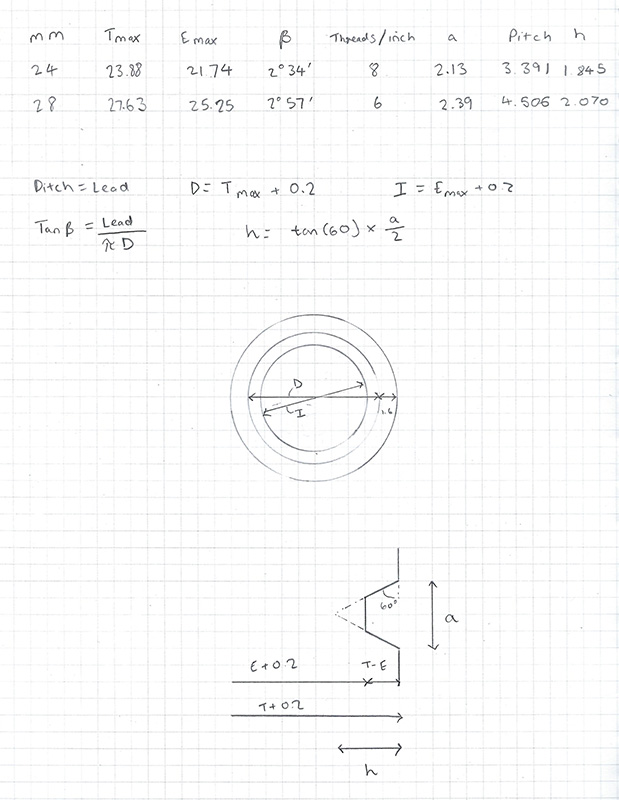 mm Tmax Emax β Threads/inch a Pitch h
24 23.88 21.74 2°34' 8 2.13 3.391 1.845
28 27.63 25.25 2°57' 6 2.39 4.506 2.070
Ditch = Lead D = Tmax + 0.2 I = Emax + 0.2
Tanβ = Lead / πD h = tan(60) × a/2
D
I
1.6
60°
a
E+0.2 T-E
T+0.2
h